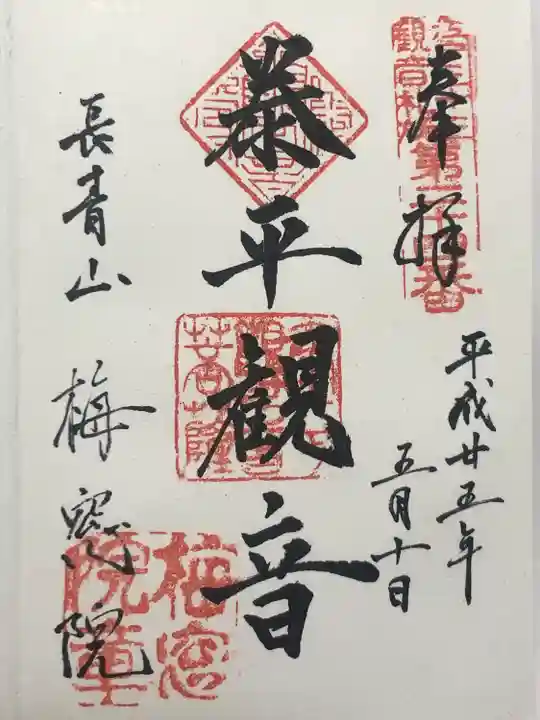 奉拝
平成廿五年
五月十日
泰平観音
長青山 梅窓院
第二十四番
梅窓院章